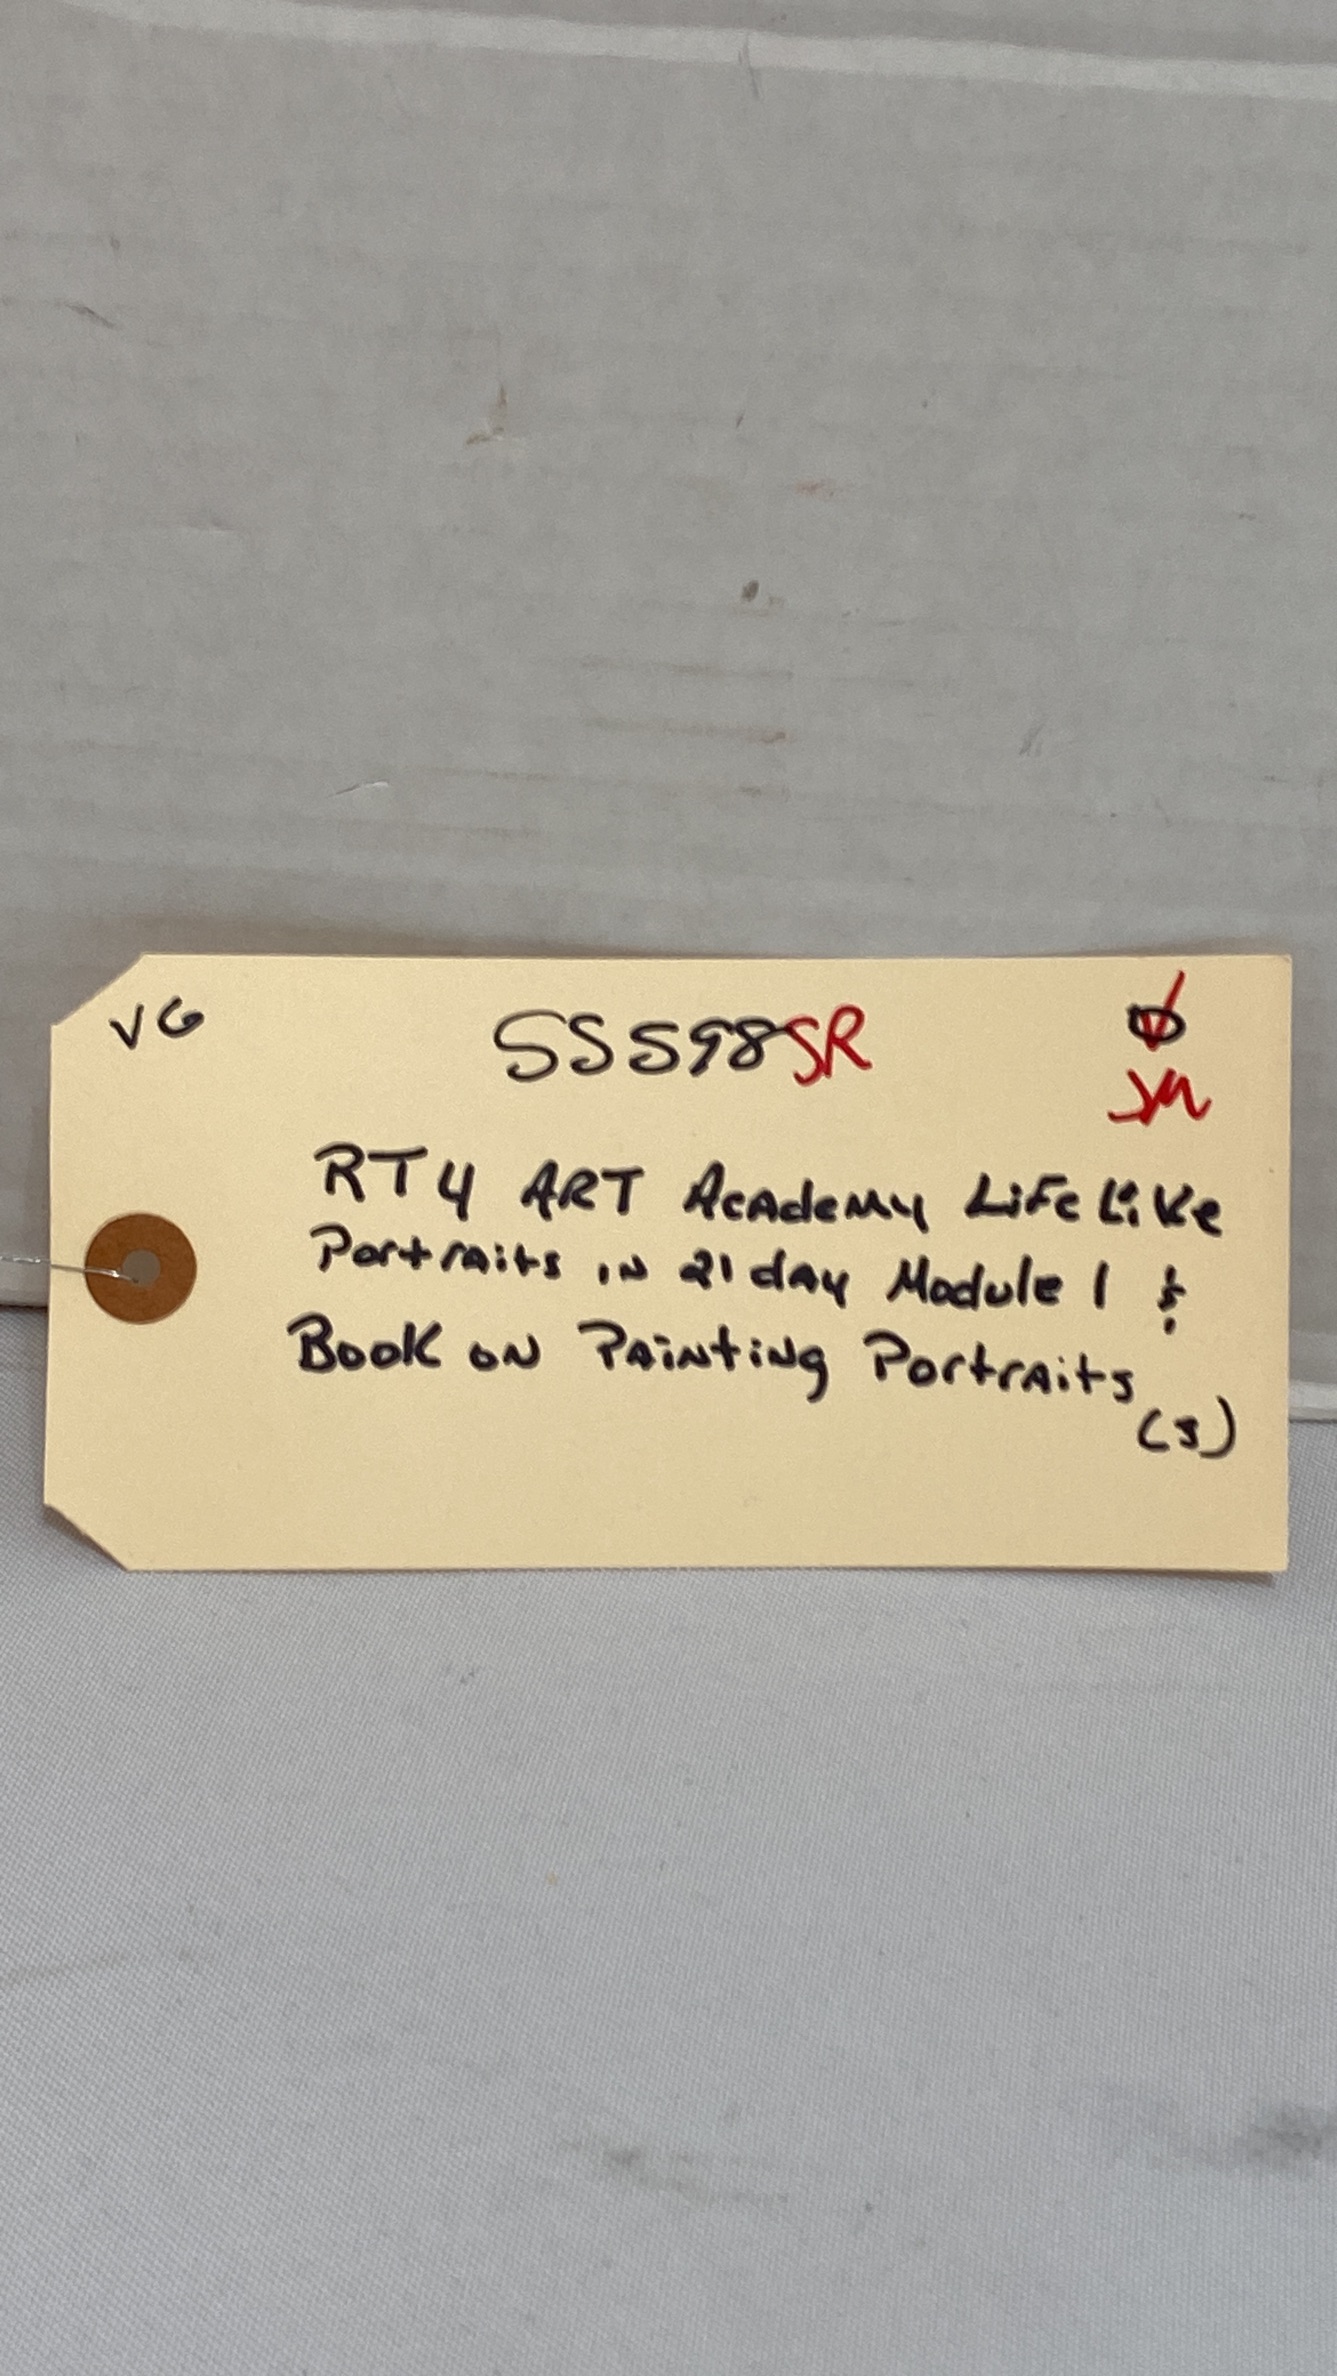 VG
SS598SR
SM
RT4 ART Academy LiFe Like
Portraits in 21 day Module 1 &
Book on Painting Portraits
(s)